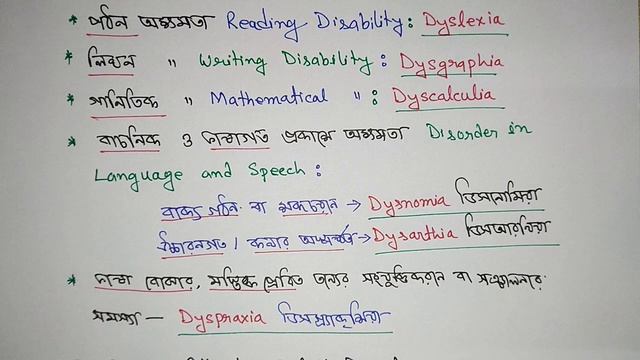 * পঠন অক্ষমতা Reading Disability: Dyslexia
* লিখন " Writing Disability: Dysgraphia
* গানিতিক " Mathematical ": Dyscalculia
* বাচনিক ও ভাষাগত প্রকাশে অক্ষমতা Disorder in
Language and Speech:
বাক্য গঠন বা → Dysnomia ডিসনোমিয়া
উচ্চারনগত / কথার → Dysarthia ডিসআরথিয়া
* ভাষা বোঝার, মস্তিষ্ক প্রেরিত তথ্যের বা সঞ্চালনার
সমস্যা — Dyspraxia ডিসপ্র্যাক্সিয়া